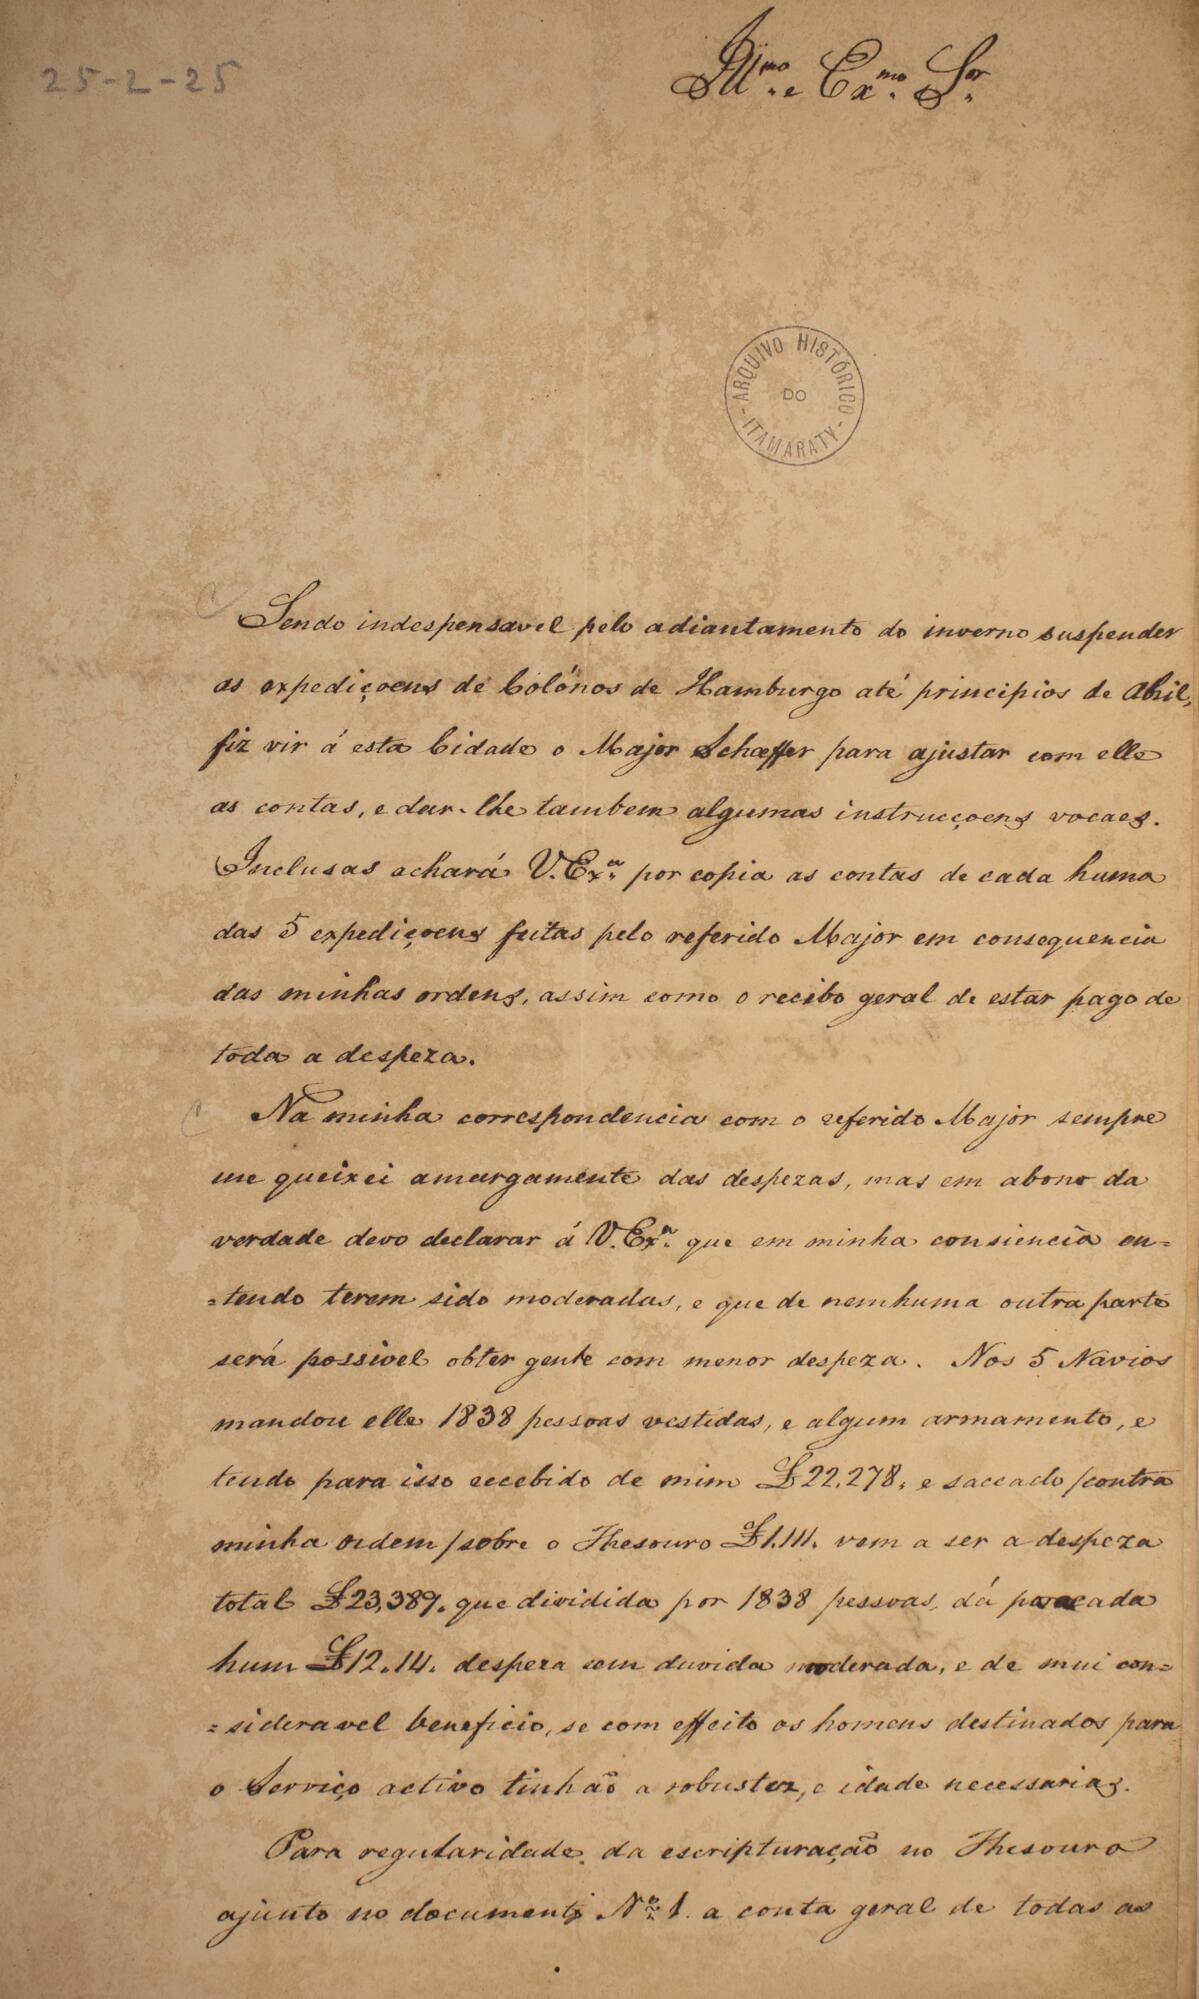 25-2-25
Illmo. e Exmo. Sor.
ARQUIVO HISTÓRICO
DO
- ITAMARATY -
Sendo indespensavel pelo adiantamento do inverno suspender
as expediçoens de Colónos de Hamburgo até principios de Abril,
fiz vir á esta Cidade o Major Schæffer para ajustar com elle
as contas, e dar-lhe tambem algumas instrucçoens vocaes.
Inclusas achará V. Exa. por copia as contas de cada huma
das 5 expediçoens feitas pelo referido Major em consequencia
das minhas ordens, assim como o recibo geral de estar pago de
toda a despeza.
Na minha correspondencia com o referido Major sempre
me queixei amargamente das despezas, mas em abono da
verdade devo declarar á V. Exa. que em minha consiencia en=
=tendo terem sido moderadas, e que de nemhuma outra parte
será possivel obter gente com menor despeza. Nos 5 Navios
mandou elle 1838 pessoas vestidas, e algum armamento, e
tendo para isso recebido de mim £22.278. e saccado /contra
minha ordem/ sobre o Thesouro £1.111. vem a ser a despeza
total £23,389. que dividida por 1838 pessoas, dá para cada
hum £12.14. despeza sem duvida moderada, e de mui con=
=sideravel beneficio, se com effeito os homens destinados para
o Serviço activo tinhão a robustez, e idade necessarias.
Para regularidade da escripturação no Thesouro
ajunto no documento No. 1. a conta geral de todas as